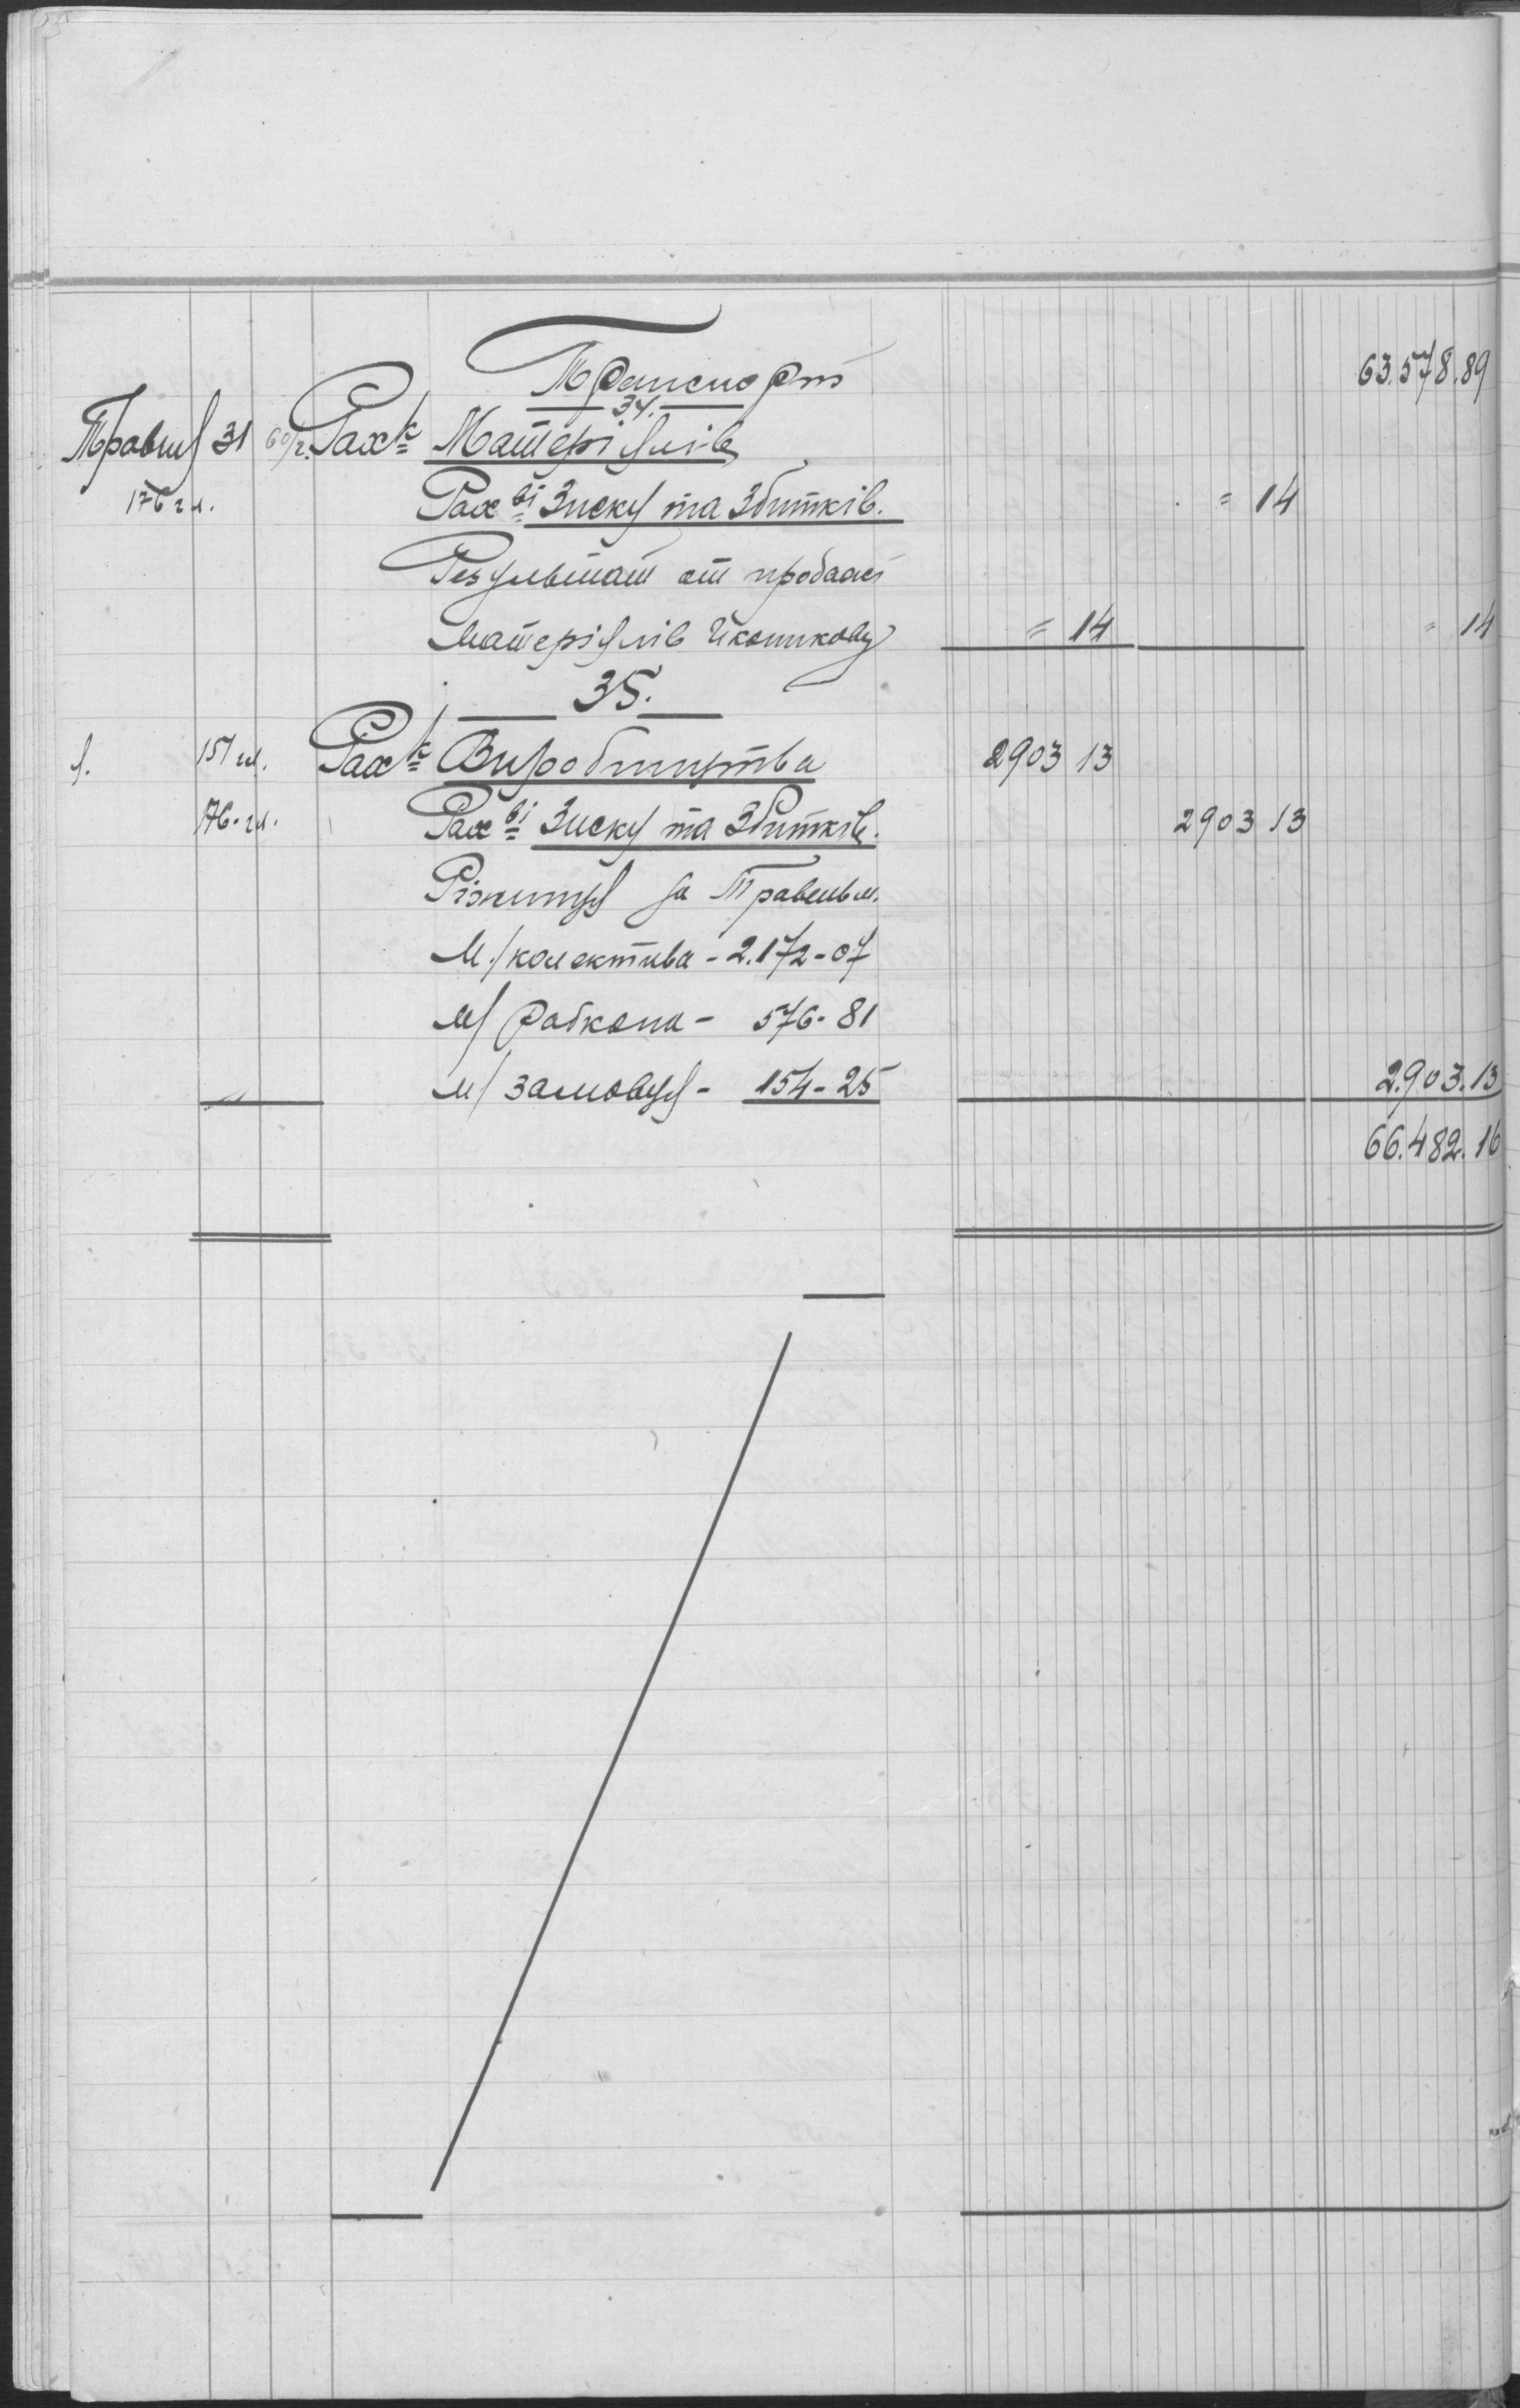 Транспорт 63.578.89
34.
Травня 31 60/г. Рах-к Матеріялів
176 гл. Рах-ві Зиску та Збитків. = 14
Результат от продажі
матеріялів Иконникову = 14 = 14
35.
151 гл. Рах-к Виробництва 2903 13
76. гл. Рах-ві Зиску та Збитків. 2903 13
Ріжниця за Травень м.
М./колектива - 2.172-07
м/ Робкопа - 576-81
м/ замовця - 154-25 2.903.13
66.482.16